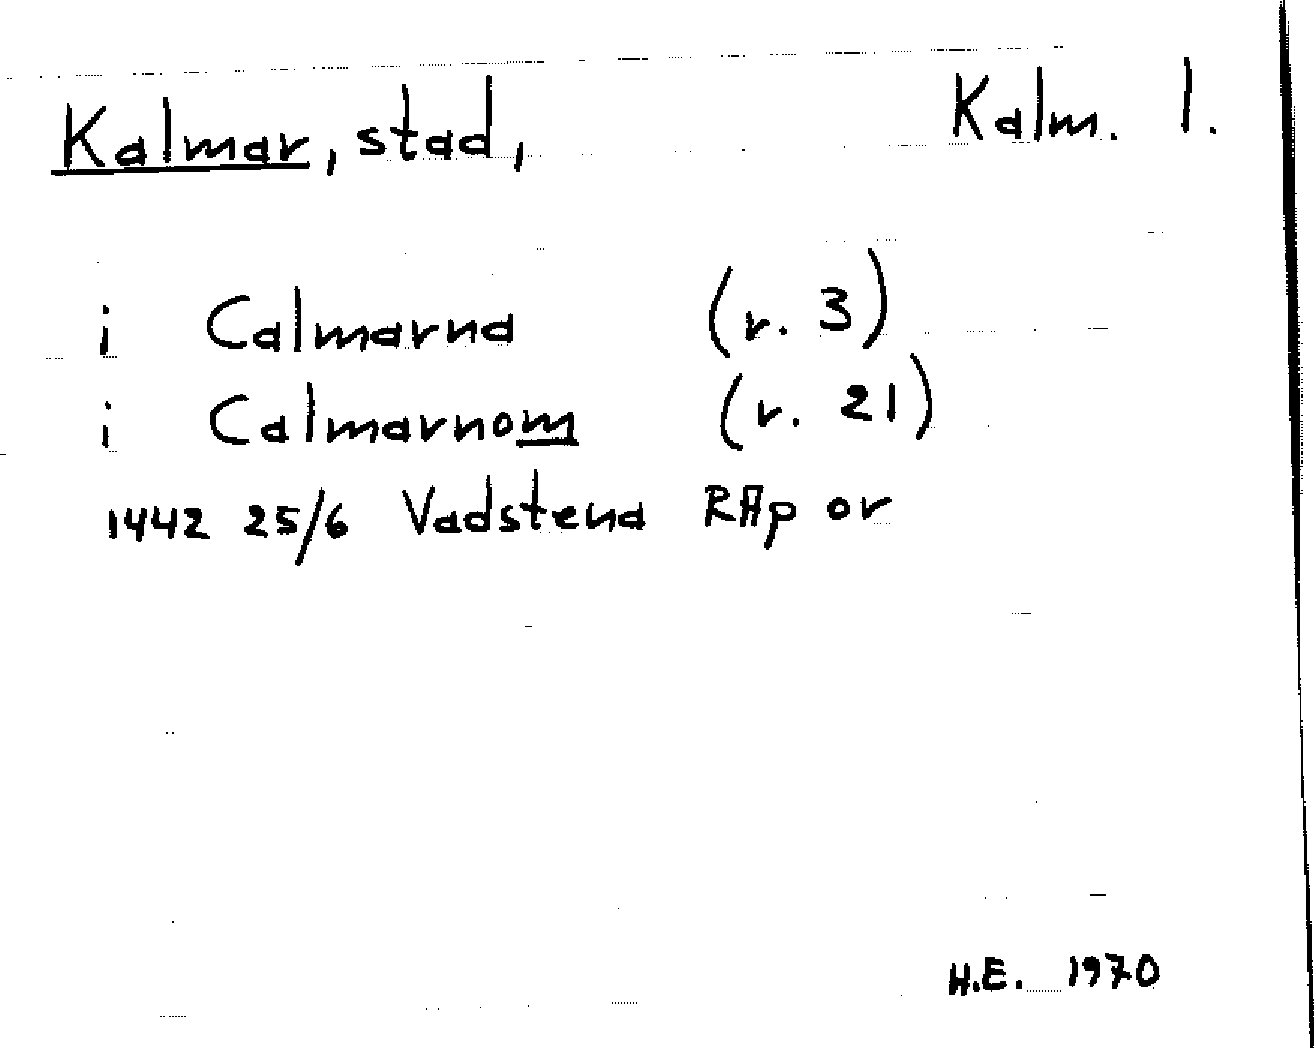 Kalmar, stad, Kalm. l.
i Calmarna (r. 3)
i Calmarnom (r. 21)
1442 25/6 Vadstena RAp or
H.E. 1970